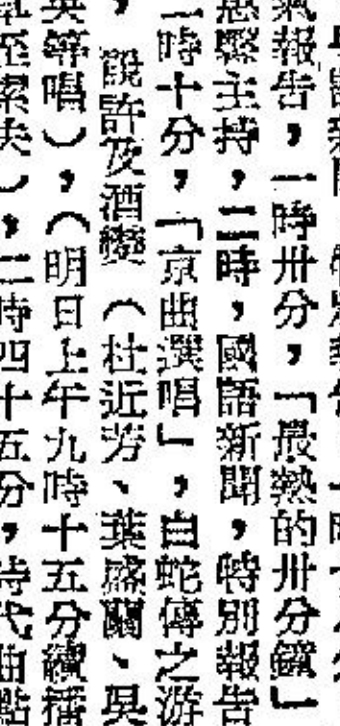 氣報告，一時卅分，「最熱的卅分鐘」
慈縣主持，二時，國語新聞，特別報告
二時十分，「京曲選唱」，白蛇傳之游
，說許及酒變（杜近芳、葉盛蘭、吳
英等唱），（明日上午九時十五分續播
），二時四十五分，時代曲點